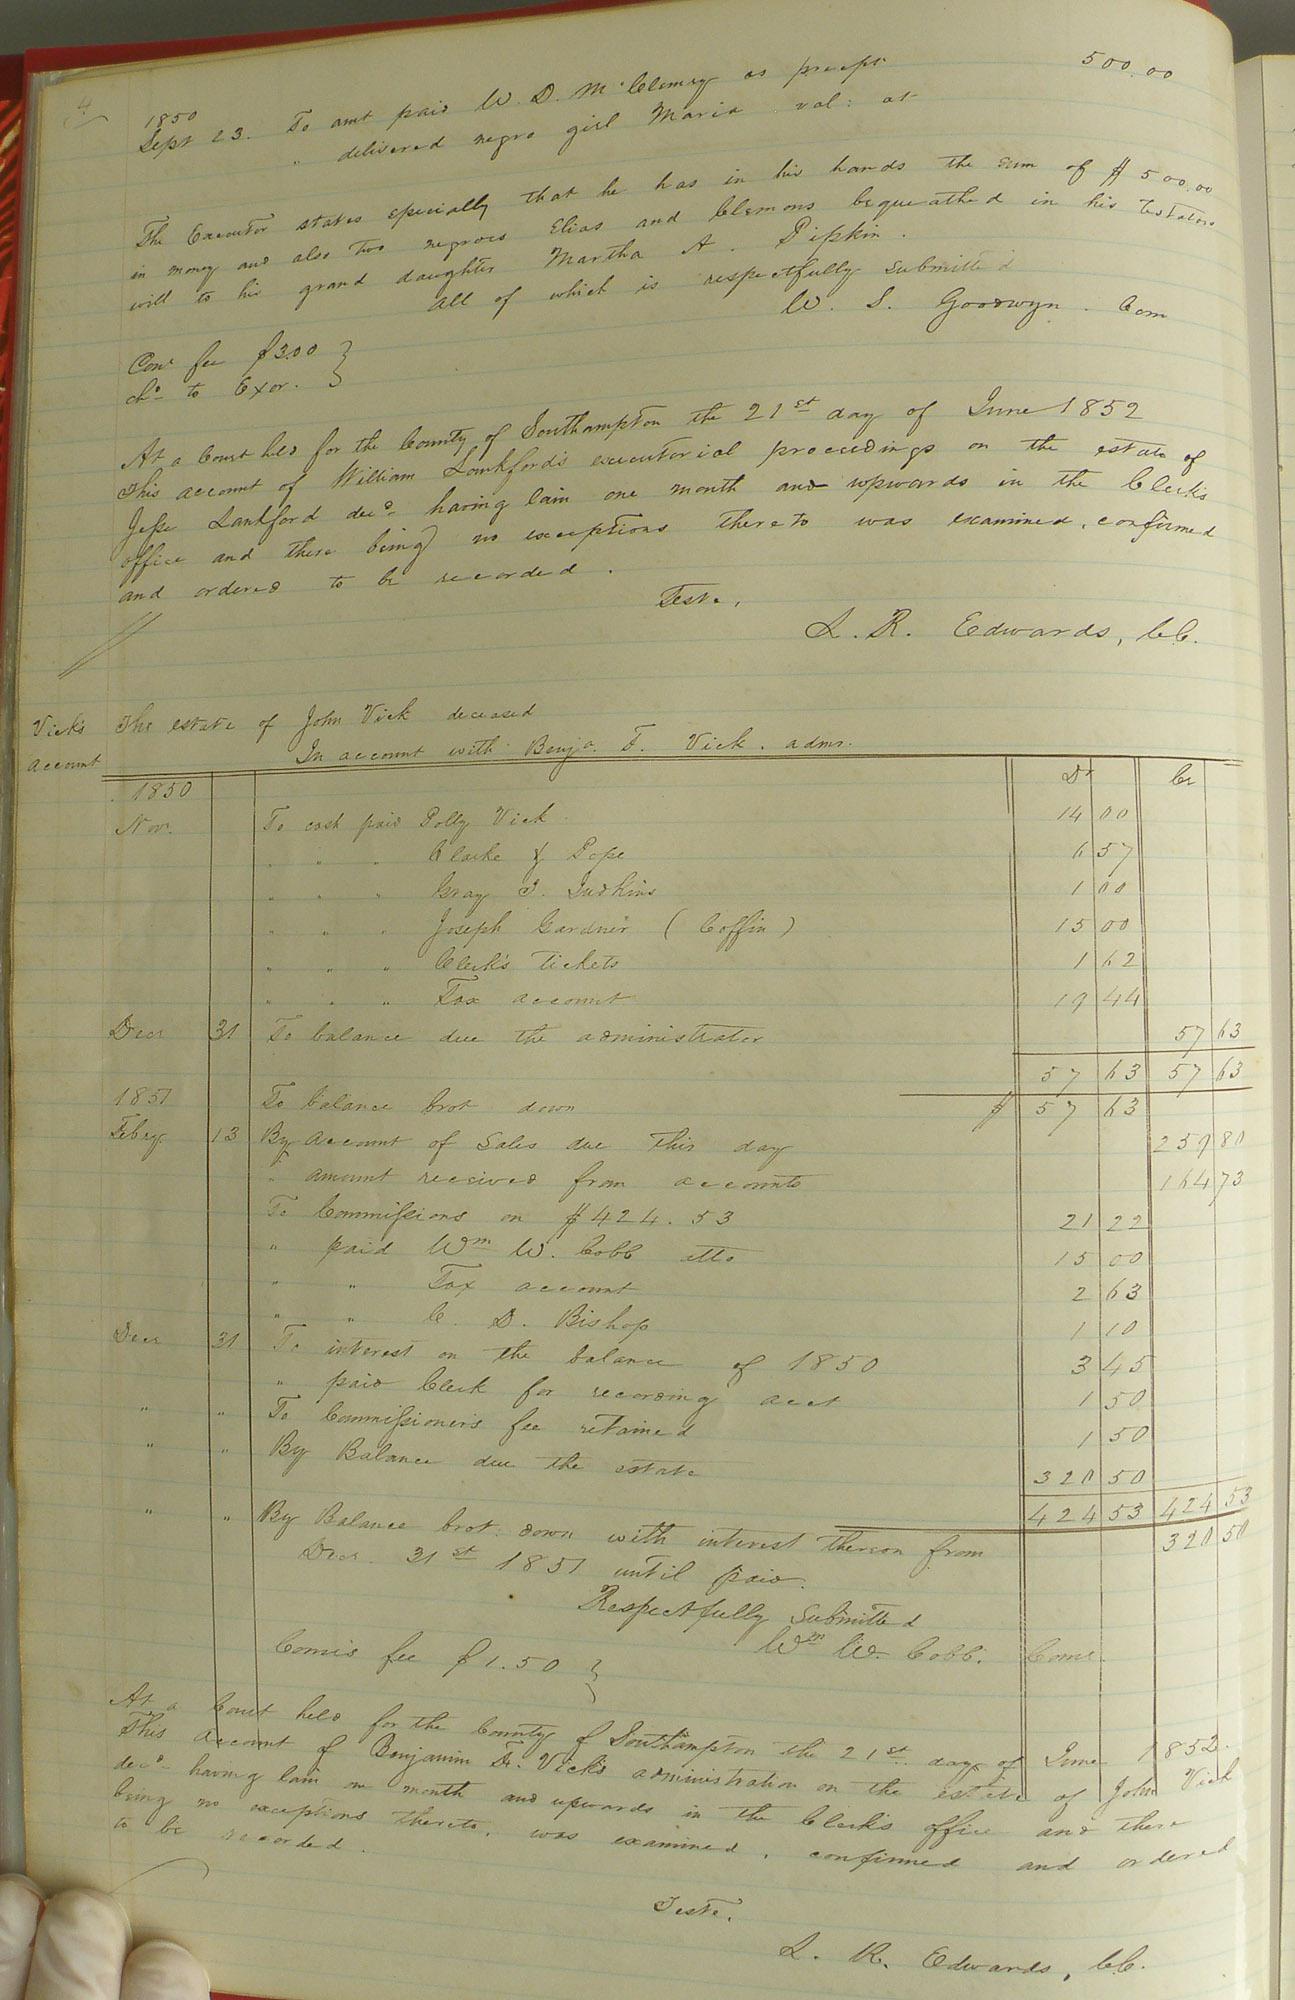 4
1850
Sept 23. To amt paid W. D. McClemsy as pr recpt 500.00
" delivered negro girl Maria val: at
The Executor states specially that he has in his hands the sum of $500.00
in money and also two negroes Elias and Clemons bequeathed in his testators
will to his grand daughter Martha A. Pipkin.
All of which is respectfully submitted
W. S. Goodwyn. Com
Com fee $3.00 }
chd to Exor. }
At a Court held for the County of Southampton the 21st day of June 1852
This account of William Lankford's executorial proceedings on the estate of
Jesse Lankford decd having lain one month and upwards in the Clerk's
office and there being no exceptions thereto was examined, confirmed
and ordered to be recorded.
Teste,
L. R. Edwards, C.C.
Vick's The estate of John Vick deceased
account In account with Benja. F. Vick. admr.
1850 Dr Cr
Nov. To cash paid Polly Vick 14 00
" " " Clarke & Pope 6 57
" " " Gray T. Judkins 1 00
" " " Joseph Gardner (Coffin) 15 00
" " " Clerk's Tickets 1 62
" " " Tax account 19 44
Decr 31 To balance due the administrator 57 63
57 63 57 63
1851 To balance brot down $ 57 63
Feby 13 By Account of Sales due this day 259 80
" amount received from accounts 164 73
To Commissions on $424.53 21 22
" paid Wm W. Cobb atto 15 00
" " Tax account 2 63
" " C. D. Bishop 1 10
Decr 31 To interest on the balance of 1850 3 45
" paid Clerk for recording acct 1 50
" " To Commissioners fee retained 1 50
" " By Balance due the estate 320 50
424 53 424 53
" " By Balance brot. down with interest thereon from 320 50
Decr. 31st 1851 until paid.
Respectfully Submitted
Wm W. Cobb. Comr.
Comis fee $1.50 }
At a Court held for the County of Southampton the 21st day of June 1852.
This account of Benjamin F. Vick's administration on the estate of John Vick
decd having lain one month and upwards in the Clerk's office and there
being no exceptions thereto, was examined, confirmed and ordered
to be recorded.
Teste.
L. R. Edwards, C.C.